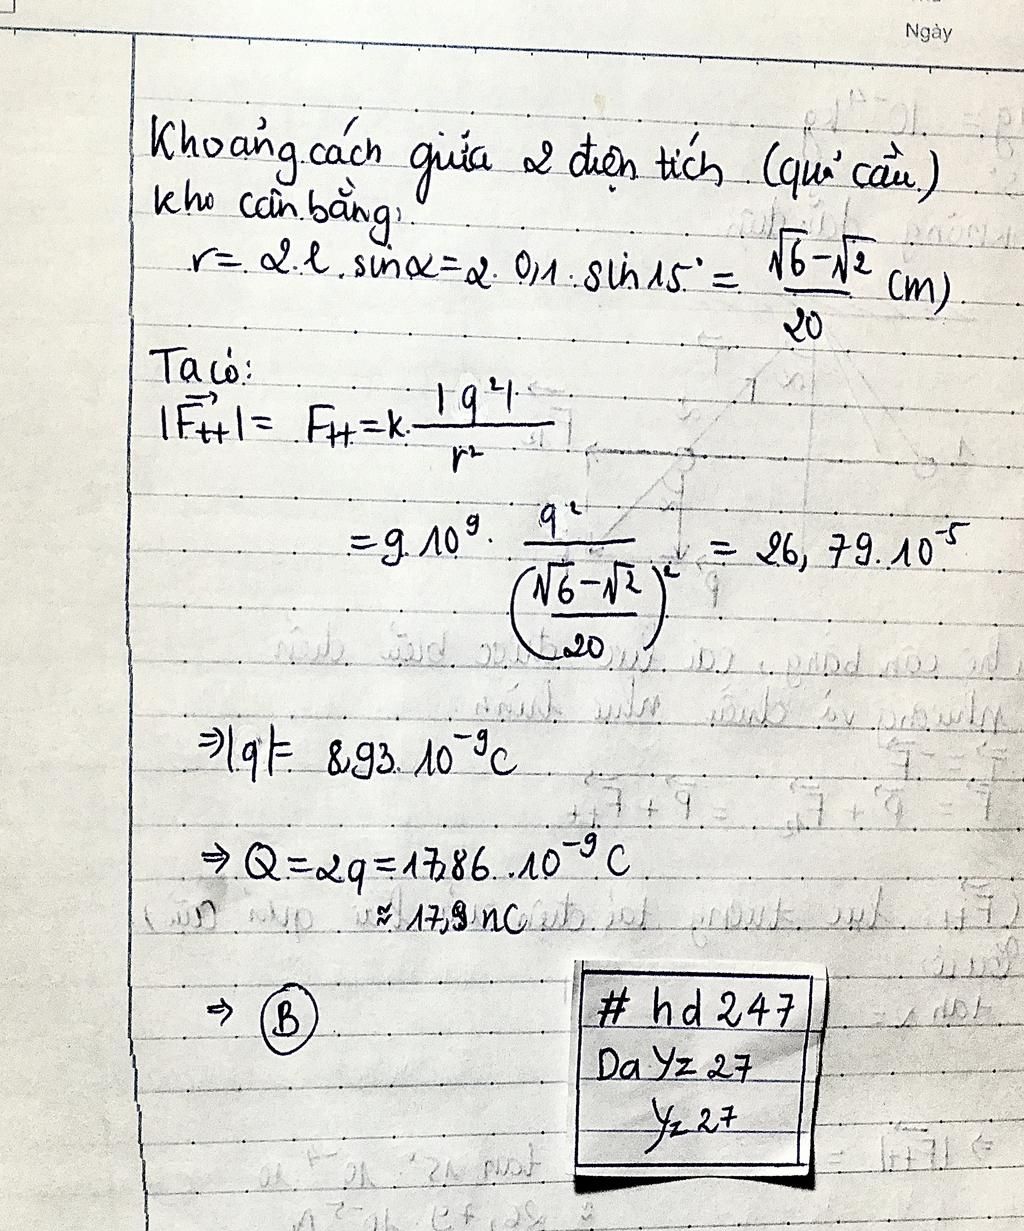 Ngày
Khoảng cách giữa 2 điện tích (quả cầu)
kho cân bằng:
r = 2.l.sinα = 2.0,1.sin15° = (√6-√2)/20 (m)
Ta có:
|F⃗tt| = Ftt = k.|q²|/r²
= 9.10⁹.q²/((√6-√2)/20)² = 26,79.10⁻⁵
⇒|q|= 8,93.10⁻⁹C
⇒ Q = 2q = 17,86.10⁻⁹C
≈ 17,9 nC
⇒ B
# hd 247
Da Yz 27
Yz 27